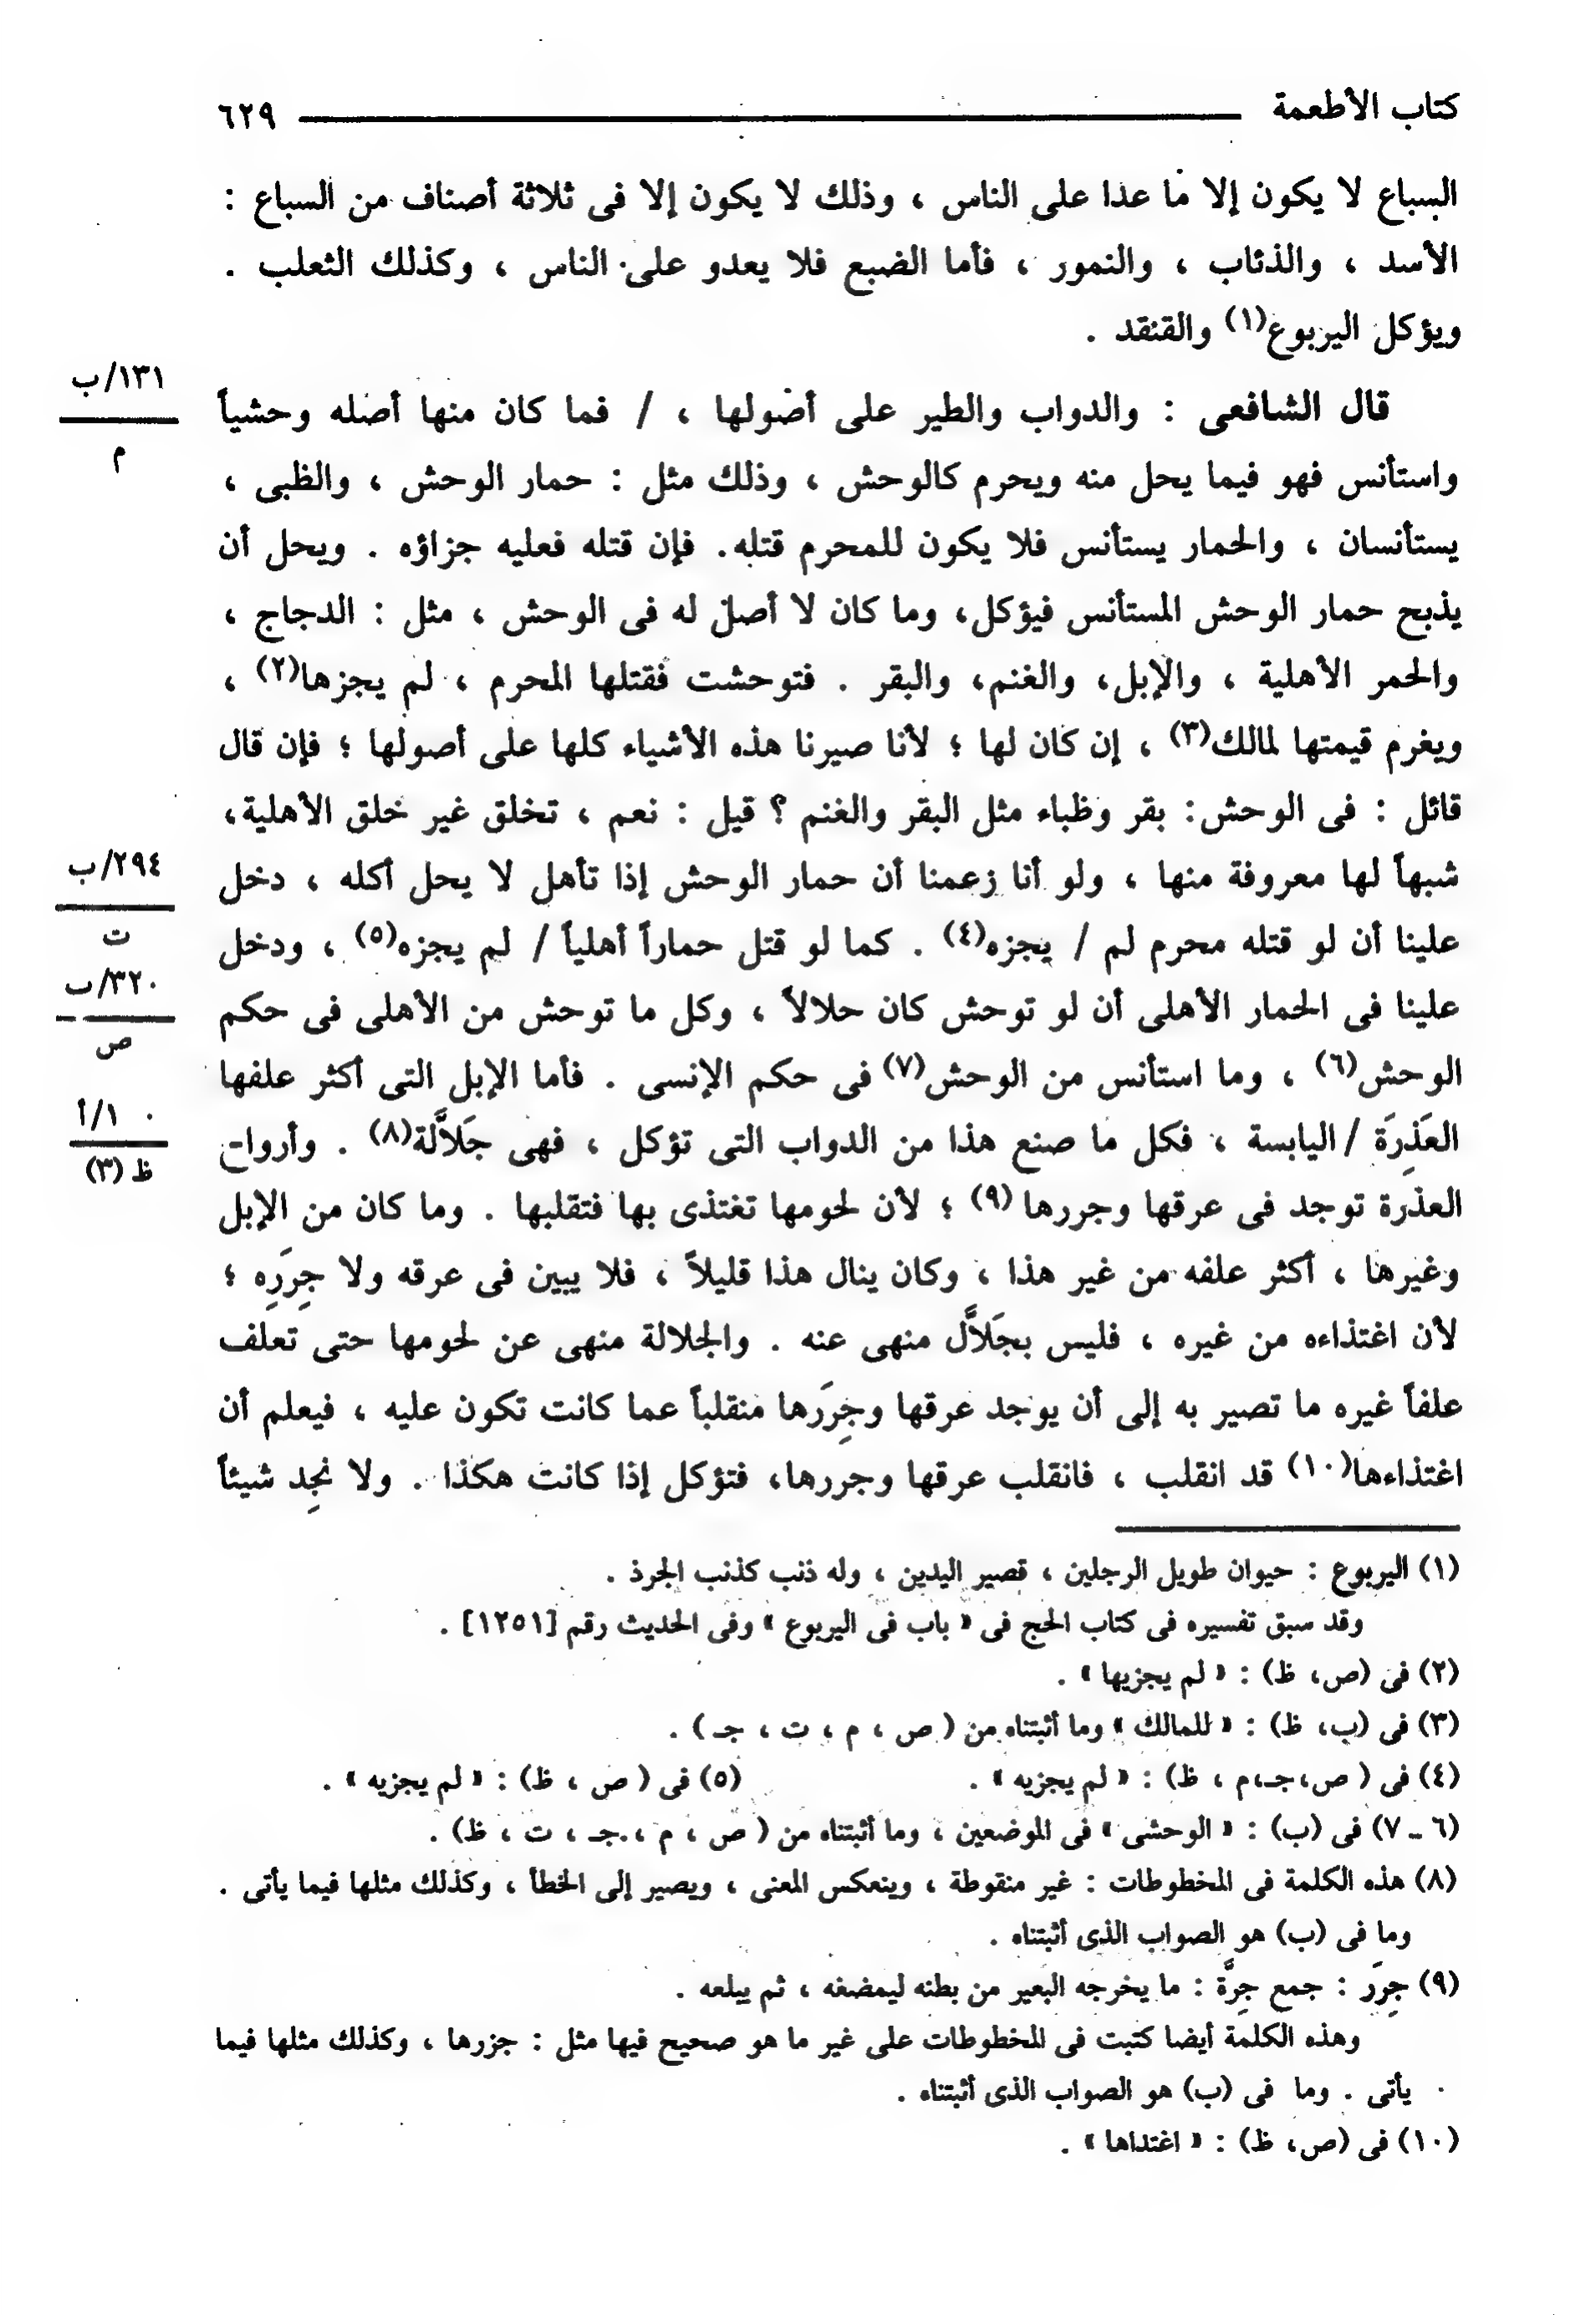 كتاب الأطعمة ٦٢٩
السباع لا يكون إلا ما عدا على الناس ، وذلك لا يكون إلا فى ثلاثة أصناف من السباع :
الأسد ، والذئاب ، والنمور ، فأما الضبع فلا يعدو على الناس ، وكذلك الثعلب .
ويؤكل اليربوع(١) والقنقد .
قال الشافعى : والدواب والطير على أصولها ، / فما كان منها أصله وحشياً
١٣١/ب
م
واستأنس فهو فيما يحل منه ويحرم كالوحش ، وذلك مثل : حمار الوحش ، والظبى ،
يستأنسان ، والحمار يستأنس فلا يكون للمحرم قتله. فإن قتله فعليه جزاؤه . ويحل أن
يذبح حمار الوحش المستأنس فيؤكل، وما كان لا أصل له فى الوحش ، مثل : الدجاج ،
والحمر الأهلية ، والإبل، والغنم، والبقر . فتوحشت فقتلها المحرم ، لم يجزها(٢) ،
ويغرم قيمتها لمالك(٣) ، إن كان لها ؛ لأنا صيرنا هذه الأشياء كلها على أصولها ؛ فإن قال
قائل : فى الوحش: بقر وظباء مثل البقر والغنم ؟ قيل : نعم ، تخلق غير خلق الأهلية،
شبهاً لها معروفة منها ، ولو أنا زعمنا أن حمار الوحش إذا تأهل لا يحل أكله ، دخل
٢٩٤/ب
ت
علينا أن لو قتله محرم لم / يجزه(٤) . كما لو قتل حماراً أهلياً / لم يجزه(٥) ، ودخل
٣٢٠/ب
ص
علينا فى الحمار الأهلى أن لو توحش كان حلالاً ، وكل ما توحش من الأهلى فى حكم
الوحش(٦) ، وما استأنس من الوحش(٧) فى حكم الإنسى . فأما الإبل التى أكثر علفها
العَذِرَة / اليابسة ، فكل ما صنع هذا من الدواب التى تؤكل ، فهى جَلاَّلة(٨) . وأرواح
١٠/أ
ظ (٣)
العذرة توجد فى عرقها وجررها (٩) ؛ لأن لحومها تغتذى بها فتقلبها . وما كان من الإبل
وغيرها ، أكثر علفه من غير هذا ، وكان ينال هذا قليلاً ، فلا يبين فى عرقه ولا جِرَرِه ؛
لأن اغتذاءه من غيره ، فليس بجَلاَّل منهى عنه . والجلالة منهى عن لحومها حتى تعلف
علفاً غيره ما تصير به إلى أن يوجد عرقها وجِرَرها منقلباً عما كانت تكون عليه ، فيعلم أن
اغتذاءها(١٠) قد انقلب ، فانقلب عرقها وجررها، فتؤكل إذا كانت هكذا . ولا نجِد شيئاً
(١) اليربوع : حيوان طويل الرجلين ، قصير اليدين ، وله ذنب كذنب الجرذ .
وقد سبق تفسيره فى كتاب الحج فى « باب فى اليربوع » وفى الحديث رقم [١٢٥١] .
(٢) فى (ص، ظ) : « لم يجزيها » .
(٣) فى (ب، ظ) : « للمالك » وما أثبتناه من ( ص ، م ، ت ، جـ ) .
(٤) فى ( ص،جـ،م ، ظ) : « لم يجزيه » . (٥) فى ( ص ، ظ) : « لم يجزيه » .
(٦ ـ ٧) فى (ب) : « الوحشى » فى الموضعين ، وما أثبتناه من ( ص ، م ، جـ ، ت ، ظ) .
(٨) هذه الكلمة فى المخطوطات : غير منقوطة ، وينعكس المعنى ، ويصير إلى الخطأ ، وكذلك مثلها فيما يأتى .
وما فى (ب) هو الصواب الذى أثبتناه .
(٩) جِرَر : جمع جِرَّة : ما يخرجه البعير من بطنه ليمضغه ، ثم يبلعه .
وهذه الكلمة أيضا كتبت فى المخطوطات على غير ما هو صحيح فيها مثل : جزرها ، وكذلك مثلها فيما
يأتى . وما فى (ب) هو الصواب الذى أثبتناه .
(١٠) فى (ص، ظ) : « اغتداها » .